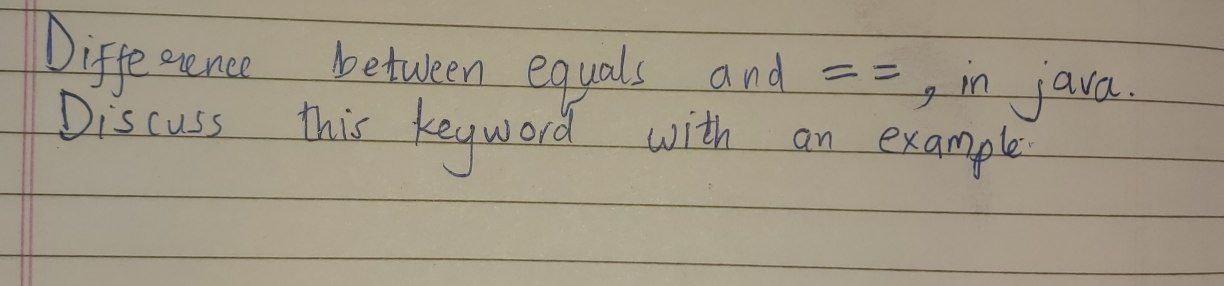 Difference between equals and ==, in java.
Discuss this keyword with an example.